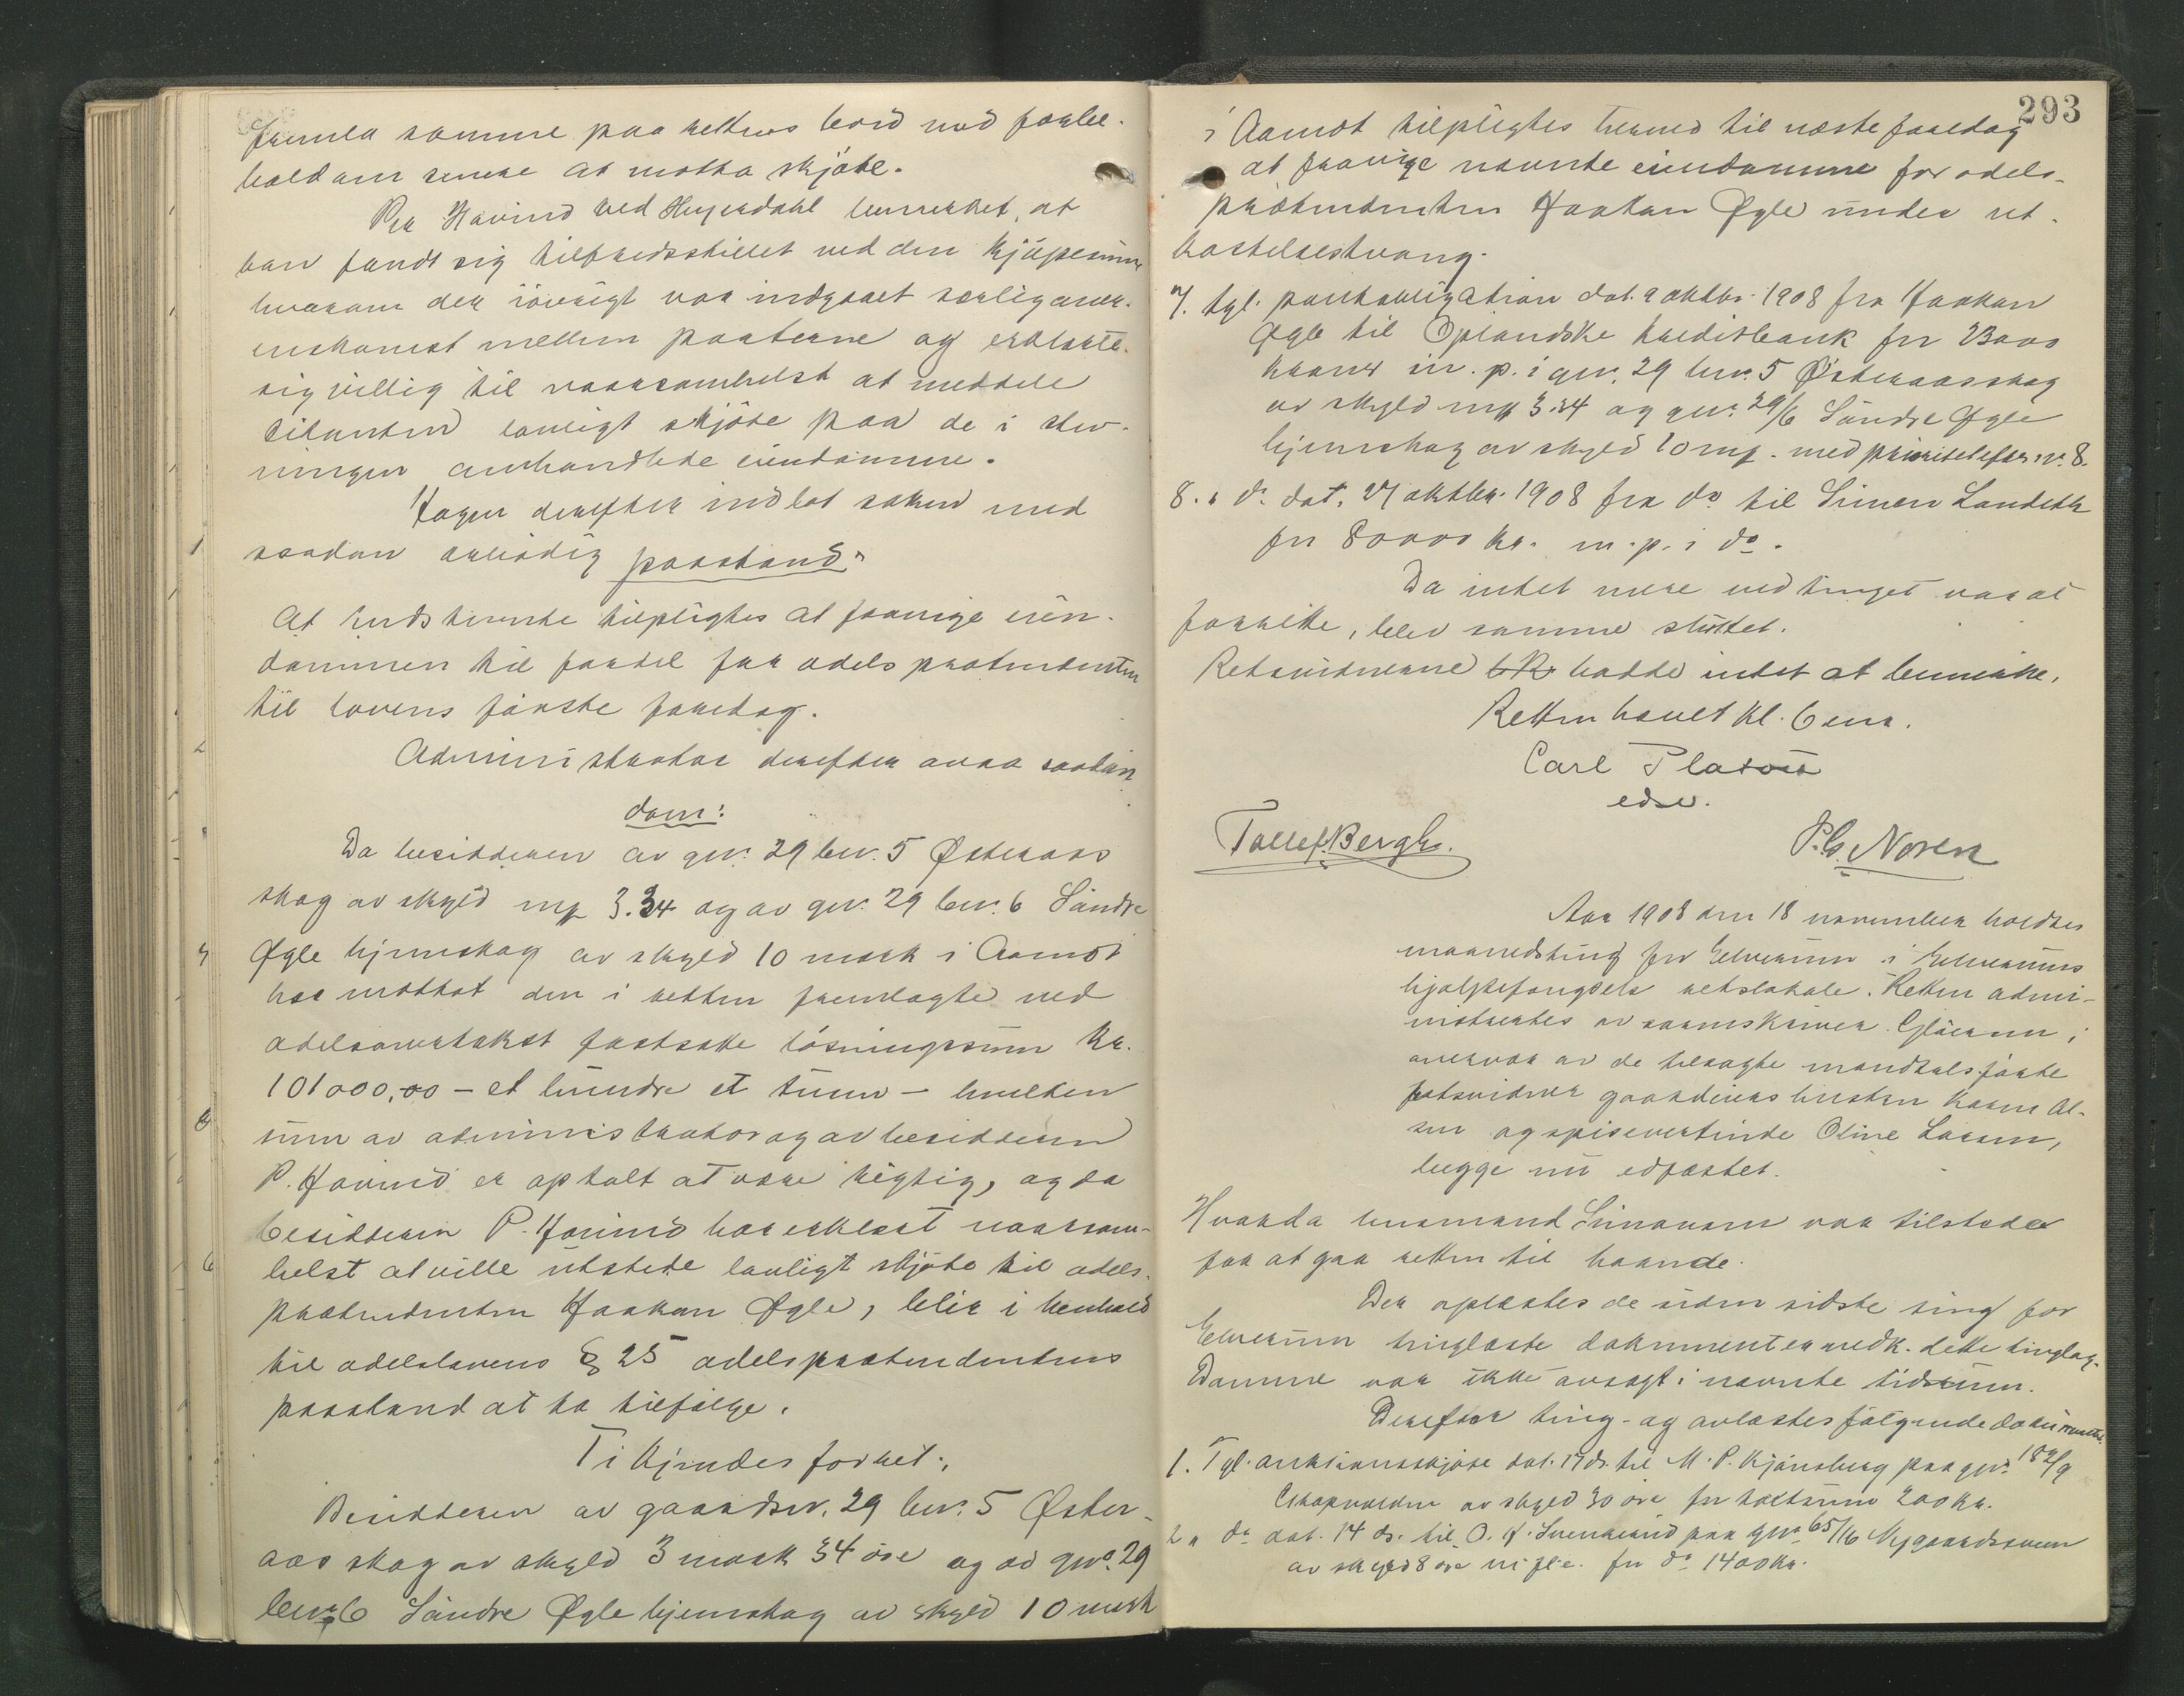 fremla samme paa rettens bord mod forbe-
hold om senere at motta skjøte.
Per Hovind ved Heyerdahl bemerket, at
han fandt sig tilfredsstillet ved den kjøpesum
hvorom der iøvrigt var indgaaet særlig over-
enskomst mellem parterne og erklærte
sig villig til naarsomhelst at meddele
citanten lovligt skjøte paa de i stev-
ningen omhandlede eiendomme.
Hagen derefter indlot saken med
saadan ærbødig paastand:
At indstevnte tilpligtes at fravige eien-
dommen til fordel for odelsprætendenten
til lovens første faredag.
Administrator derefter avsa saadan
dom:
Da besidderen av gnr. 29 bnr. 5 Østeraas
skog av skyld mk 3.34 og av gnr. 29 bnr. 6 Søndre
Øgle hjemskog av skyld 10 mark i Aamot
har mottat den i retten fremlagte ved
odelsovertakst fastsatte løsningssum kr.
101000,00 – et hundre et tusen – hvilken
sum av administrator og av besidderen
P. Hovind er optalt at være rigtig, og da
besidderen P. Hovind har erklært naarsom-
helst at ville utstede lovligt skjøte til odels-
prætendenten Haakon Øgle, blir i henhold
til odelslovens § 25 odelsprætendentens
paastand at ta tilfølge.
Ti kjendes for ret:
Besidderen av gaardsnr. 29 bnr. 5 Øster-
aas skog av skyld 3 mark 34 øre og av gnr. 29
bnr. 6 Søndre Øgle hjemskog av skyld 10 mark
293
i Aamot tilpligtes herved til næste faredag
at fravige nævnte eiendomme for odels-
prætendenten Haakon Øgle under ut-
kastelsestvang.
7. Tgl. pantobligation dat. 9 oktbr. 1908 fra Haakon
Øgle til Oplandske kreditbank for
kroner m. p. i gnr. 29 bnr. 5 Østeraasskog
av skyld mk 3.34 og gnr. 29/6 Søndre Øgle
hjemskog av skyld 10 mk. med prioritet efter nr. 8.
8. " do dat. 27 oktbr. 1908 fra do til Simen Landeth
for 80000 kr. m. p. i do.
Da intet mere ved tinget var at
forrette, blev samme sluttet.
Retsvidnerne hadde intet at bemerke.
Retten hævet kl. 6 em.
Carl Platou
edsv.
Tollef Bergh.
P. C. Noren
Aar 1908 den 18 november holdtes
maanedsting for Elverum i Elverums
hjælpefængsels retslokale. Retten admi-
nistrertes av sorenskriver Gløersen i
overvær av de tilsagte mandtalsførte
retsvidner gaardeiers hustru Karen Ol-
sen og spisevertinde Oline Larsen,
begge nu edfæstet.
Hvorda lensmand Simonsen var tilstede
for at gaa retten til haande.
Der oplæstes de siden sidste ting for
Elverum tinglæste dokumenter vedk. dette tinglag.
Domme var ikke avsagt i nævnte tidsrum.
Derefter ting- og avlæstes følgende dokumenter:
1. Tgl. auktionsskjøte dat. 17 ds. til M. P. Kjønsberg paa gnr. 182/9
av skyld 30 øre for kjøpesum 200 kr.
2 " do dat. 14 ds. til O. H. Svenkerud paa gnr. 65/16 Nygaardsveen
av skyld 8 øre m. fl. e. for do 1400 kr.